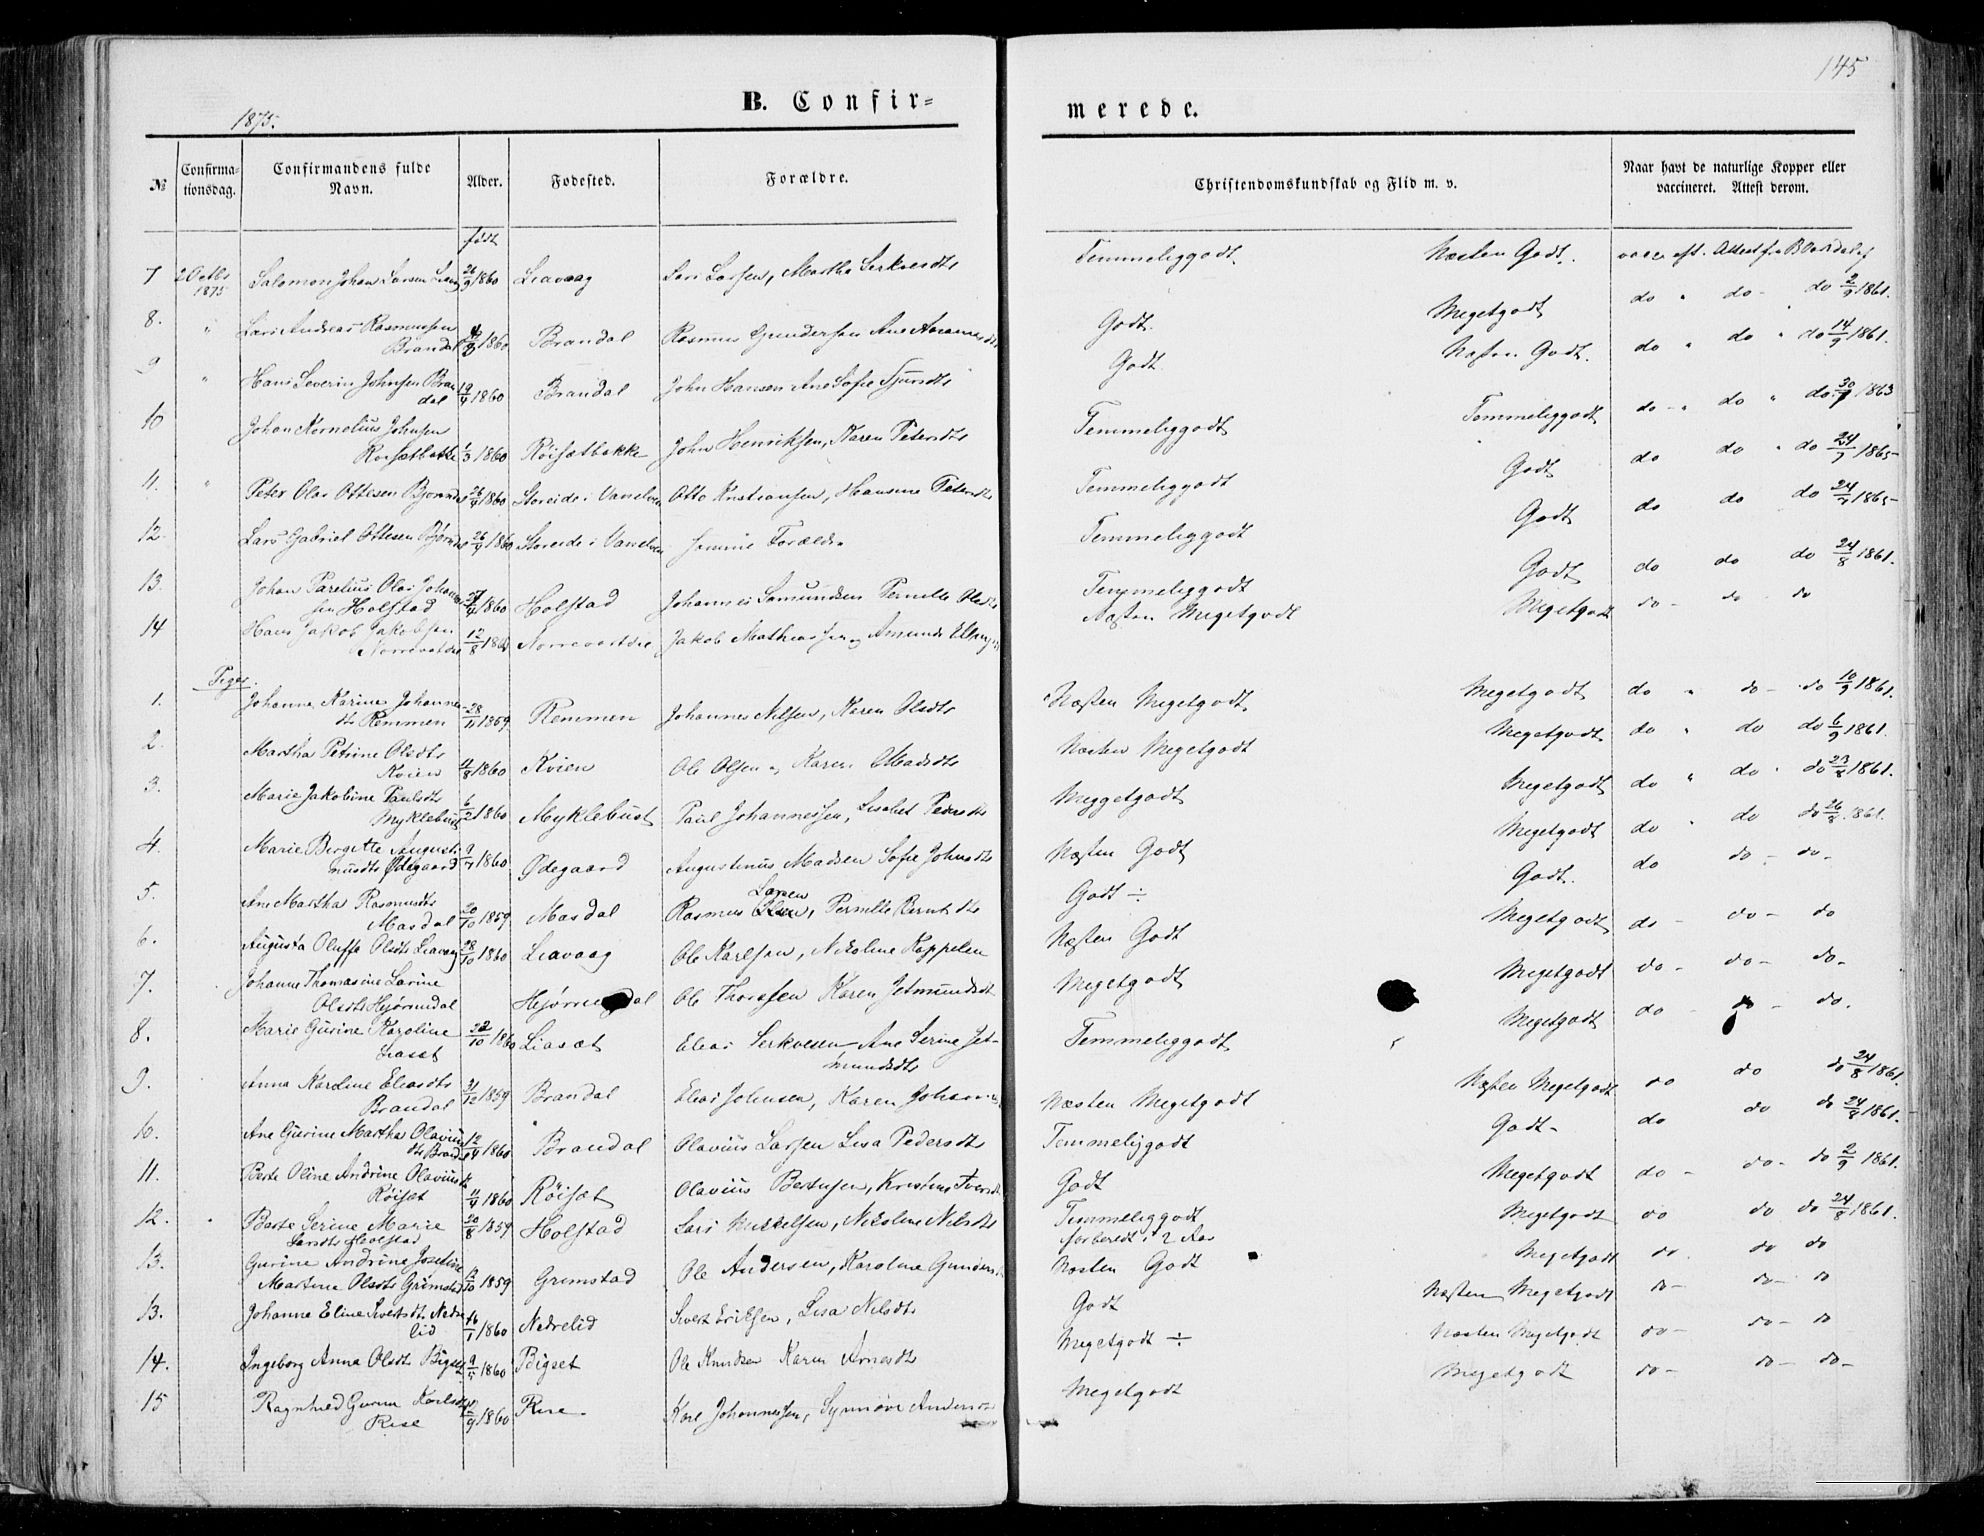 145
B. Confir=
merede.
1875.
№
Confirma-
tionsdag.
Confirmandens fulde
Navn.
Alder.
Fødested.
Forældre.
Christendomskundskab og Flid m. v.
Naar havt de naturlige Kopper eller
vaccineret. Attest derom.
født
7 2 Octbr 1875 Salomon Johan Larsen 26/9 1860 Liavaag Lars Larsen, Martha Serkvesdtr Temmeliggodt Næsten Godt. vacc. eft. Attest fr
do " do - do 2/9 1861.
8. " Lars Andreas Rasmussen
Brandal 1860 Brandal Rasmus Gundersen Ane Godt. Megetgodt do " do " do 14/9 1861.
9 " Hans Severin Johnsen Bran
dal 19/4 1860 Brandal John Hansen Ane Sofie Godt. Næsten Godt. do - " do " do 1863
10 Johan Kornelius Johnsen
1/3 1860 Røisætbakke John Henriksen, Karen Petersdtr Temmeliggodt Temmeliggodt do do " do 24/7 1865
11. " Peter Olai Ottesen 26/9 1860 Storeide i Vanelven Otto Kristiansen, Hansine Petersdtr Temmeliggodt Godt do do do 24/7 1865
12. Lars Gabriel Ottesen 26/9 1860 Storeide i Vanelven samme Forældre Temmeliggodt Godt do do do 24/8 1861.
13. Johan Parelius Olai Johannes
sen Holstad 1860 Holstad Johannes Amundsen Pernille Olsdtr Temmeliggodt Godt do - do - do
14 Hans Jakob Jakobsen
12/8 Jakob Mathiassen Næsten Megetgodt Megetgodt
Piger.
1. Johanne Karine Johannes
dtr Remmen 28/11 1869 Remmen Johannes Nilsen, Karen Olsdtr Næsten Megetgodt. Megetgodt do " do - do 10/9 1861.
2. Martha Petrine Olsdtr
Kvien 4/8 1860 Kvien Ole Olsen Karen Madsdtr Næsten Megetgodt Megetgodt do " do do 6/9 1861.
3. Marie Jakobine Paulsdtr
Myklebust 6/2 1860 Myklebust Paul Johannessen, Lisabet Pedersdtr Meggetgodt Megetgodt do " do " do 23/8 1861.
4. Marie Bergitte Augusti
nusdtr Ødegaard 9/7 1860 Ødegaard Augustinus Madsen Sofie Johnsdtr Næsten Godt Megetgodt do " do do 26/8 1861.
5. Ane Martha Rasmusdtr
Masdal 20/10 1859 Masdal Rasmus Larsen, Pernille Berntsdtr Godt ÷ Godt. do do - do -
6. Augusta Oluffa Olsdtr Liavaag 28/10 1860 Liavaag Ole Karlsen, Nikoline Koppelen Næsten Godt Megetgodt do - do - do
7. Johanne Thomasine Larine
Olsdtr Hjørundal Hjørundal Ole Thorssen Karen Jetmundsdtr Megetgodt Megetgodt do - do - do -
8. Marie Gurine Karoline
Liaset 22/10 1860 Liasæt Elias Serkvesen Ane Serine Jet-
mundsdtr Temmeliggodt Megetgodt do - do - do.
9. Anna Karoline Eliasdtr
Brandal 31/12 1859 Brandal Elias Johnsen, Karen Næsten Megetgodt Næsten Megetgodt do do do 24/8 1861.
10. Ane Gurine Martha Olavius
dtr Brandal 12/4 1860 Brandal Olavius Larsen Lisa Pedersdtr Temmeliggodt Godt - do do do 24/8 1861.
11. Berte Oline Andrine Olaviusdtr
Røiset 11/4 1860 Røisæt Olavius Bertnsen, Kristine Godt Megetgodt do - do - do 2/9 1861.
12. " Berte Serine Marie
Larsdtr Holstad 20/8 1859 Holstad Lars Mikkelsen, Nikoline Nilsdtr Temmeliggodt
forberedt i 2 Aar Megetgodt do do do 24/8 1861.
13. Gurine Andrine Josefine
Martine Olsdtr Grimstad 12/10 1859 Grimstad Ole Andersen, Karoline Næsten Godt Megetgodt do. do do
13. Johanne Eline Sivertsdtr Nedre
lid 16/1 1860 Nedrelid Sivert Eriksen, Lisa Nilsdtr Godt Næsten Megetgodt do - do - do
14. Ingeborg Anna Olsdtr Bigset 9/5 1860 Bigset Ole Knudsen Karen Arnesdtr Megetgodt ÷ Næsten Megetgodt do - do - do
15 Ragnhild Gurine Karlsdtr
Rise 1860 Rise Karl Johannessen, Synnøve Megetgodt Megetgodt do - do - do -